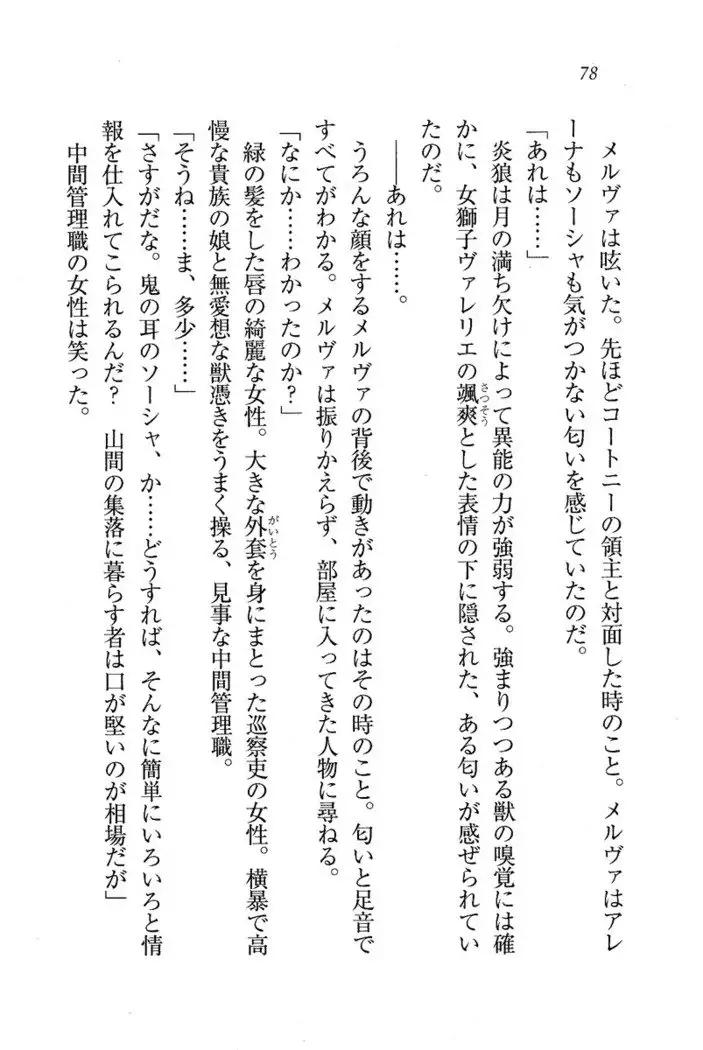 78
メルヴァは呟いた。先ほどコートニーの領主と対面した時のこと。メルヴァはアレ
ーナもソーシャも気がつかない匂いを感じていたのだ。
「あれは……」
炎狼は月の満ち欠けによって異能の力が強弱する。強まりつつある獣の嗅覚には確
かに、女獅子ヴァレリエの颯爽とした表情の下に隠された、ある匂いが感ぜられてい
たのだ。
――あれは……。
うろんな顔をするメルヴァの背後で動きがあったのはその時のこと。匂いと足音で
すべてがわかる。メルヴァは振りかえらず、部屋に入ってきた人物に尋ねる。
「なにか……わかったのか？」
緑の髪をした唇の綺麗な女性。大きな外套を身にまとった巡察吏の女性。横暴で高
慢な貴族の娘と無愛想な獣憑きをうまく操る、見事な中間管理職。
「そうね……ま、多少……」
「さすがだな。鬼の耳のソーシャ、か……どうすれば、そんなに簡単にいろいろと情
報を仕入れてこられるんだ？　山間の集落に暮らす者は口が堅いのが相場だが」
中間管理職の女性は笑った。
さっそう
がいとう